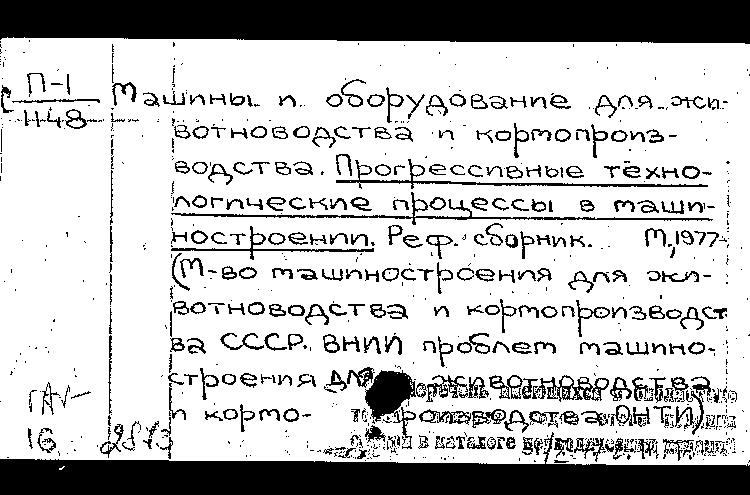 П-1
1148
Машины и оборудование для жи-
вотноводства и кормопроиз-
водства. Прогрессивные техно-
логические процессы в маши-
ностроении. Реф. сборник. М., 1977-
(М-во машиностроения для жи-
вотноводства и кормопроизводст
ва СССР. ВНИИ проблем машино-
строения для животноводства
и кормо- производства ОНТИ)
Перечень имеющихся в библиотеке
в каталоге периодических изданий
16 2873